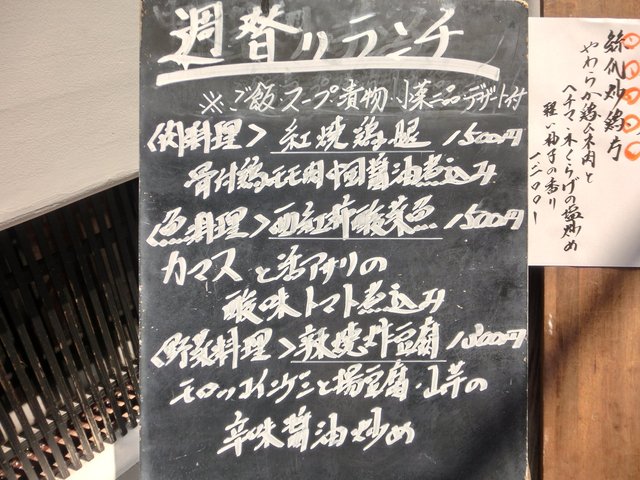 週替りランチ
※ご飯・スープ・漬物・小菜二品・デザート付
〈肉料理〉紅焼鶏腿 1500円
骨付鶏モモ肉中国醤油煮込み
〈魚料理〉西紅柿酸菜魚 1500円
カマスと活アサリの
酸味トマト煮込み
〈野菜料理〉辣焼炸豆腐 1300円
モロッコインゲンと揚豆腐・山芋の
辛味醤油炒め
絲瓜炒鶏片
やわらか鶏ムネ肉と
ヘチマ・木くらげの塩炒め
軽い柚子の香り